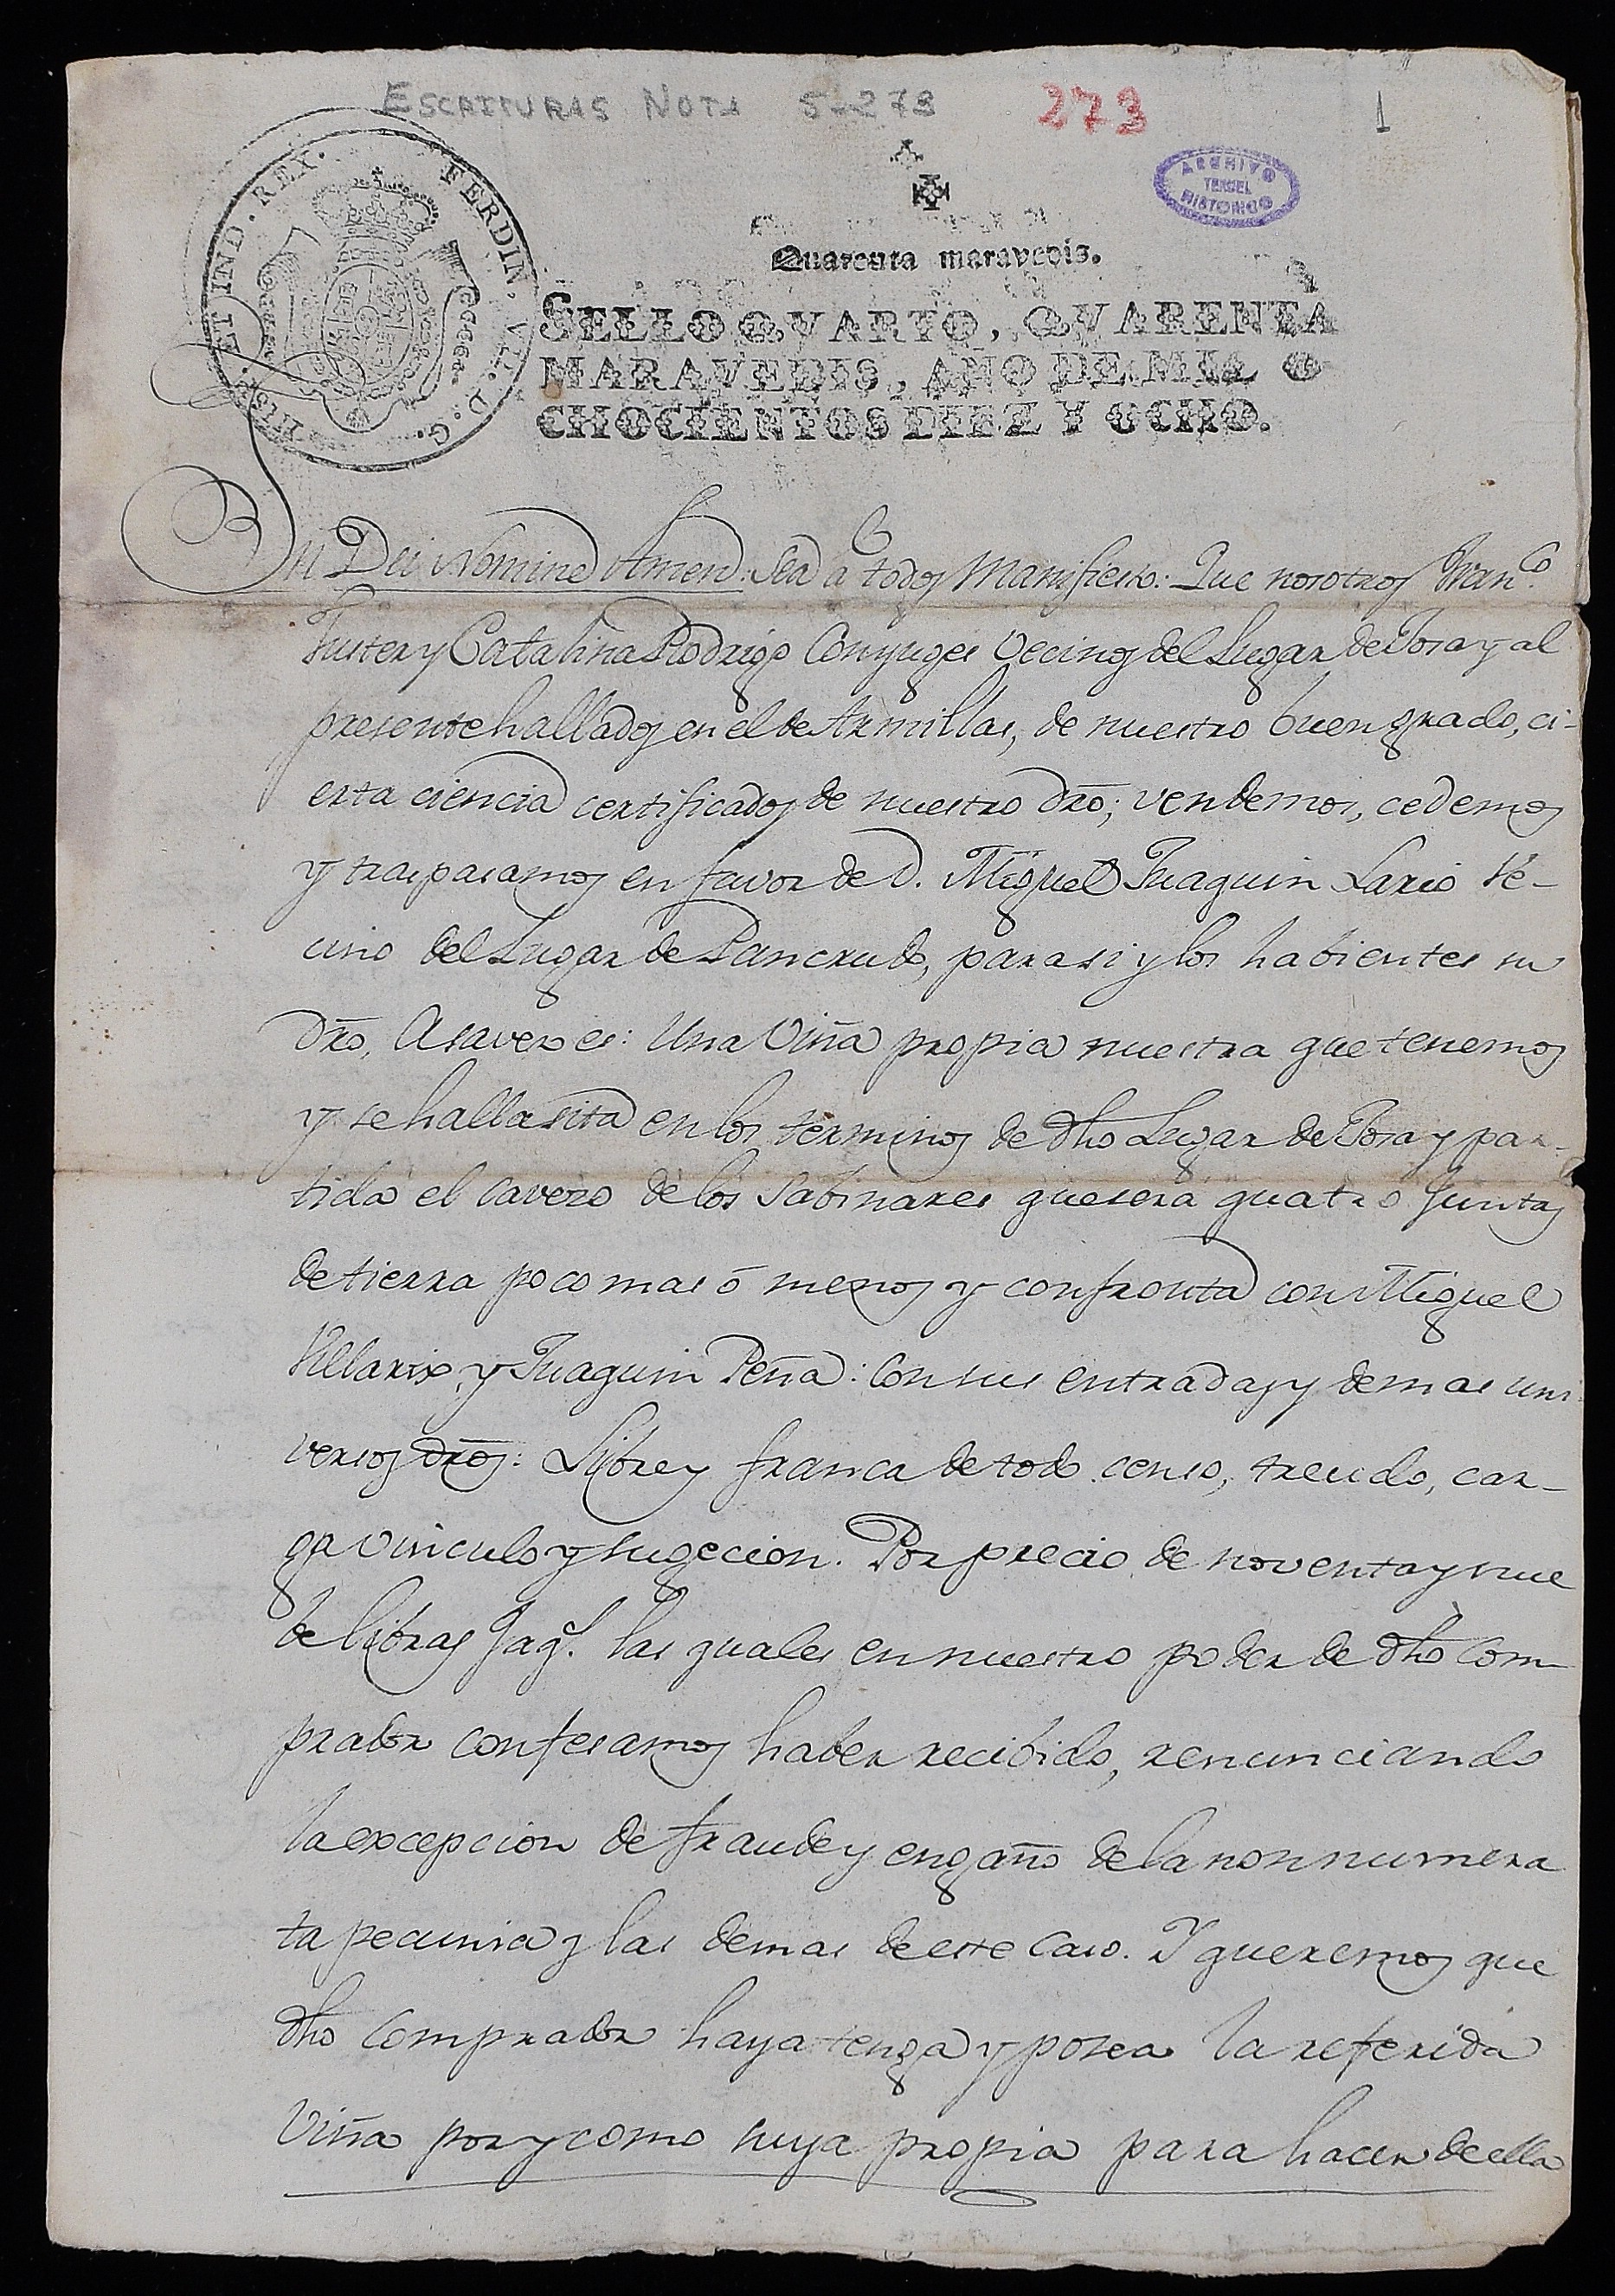 ESCRITURAS NOTA 5-273 273 1
ARCHIVO
TERUEL
HISTORICO
HISP. ET IND. REX. FERDIN. VII. D. G.
Quarenta maravedis.
SELLO QVARTO, QVARENTA
MARAVEDIS, AÑO DE MIL O
CHOCIENTOS DIEZ Y OCHO.
In Dei Nomine Amen: Sea à todos Manifiesto: Que nosotros Fran.co
Fuster y Catalina Rodrigo Conyuges Vecinos del Lugar de Josa y al
presente hallados en el de Armillas, de nuestro buen grado, ci-
erta ciencia certificados de nuestro dro; vendemos, cedemos
y traspasamos en favor de D. Miguel Juaquin Lario Ve-
cino del Lugar de Pancrudo, para si y los habientes su
dro, A saver es: Una Viña propia nuestra que tenemos
y se halla sita en los terminos de dho Lugar de Josa y par-
tida el cavezo de los Sabinares que sera quatro Juntas
de tierra poco mas ó menos y confronta con Miguel
y Juaquin Peña: Con sus entradas y demas uni
versos dros: Libre y franca de todo censo, treudo, car-
ga vinculo y sugecion. Por precio de noventa y nue
be libras Jaq.s las quales en nuestro poder de dho com-
prador confesamos haber recibido, renunciando
la excepcion de fraude y engaño de la non numera
ta pecunia y las demas de este caso. Y queremos que
dho comprador haya tenga y posea la referida
Viña por y como suya propia para hacer de ella